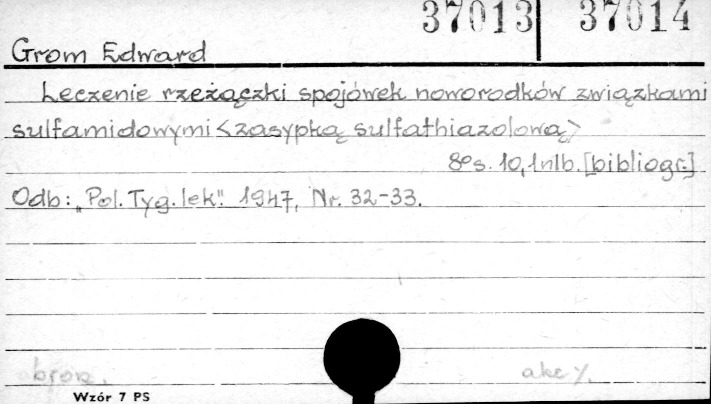 37013 37014
Grom Edward
Leczenie rzeżączki spojówek noworodków związkami
sulfamidowymi <zasypką sulfathiazolową>
8° s. 10, 1 nlb. [bibliogr.]
Odb: „Pol. Tyg. lek." 1947, Nr. 32-33.
Wzór 7 PS